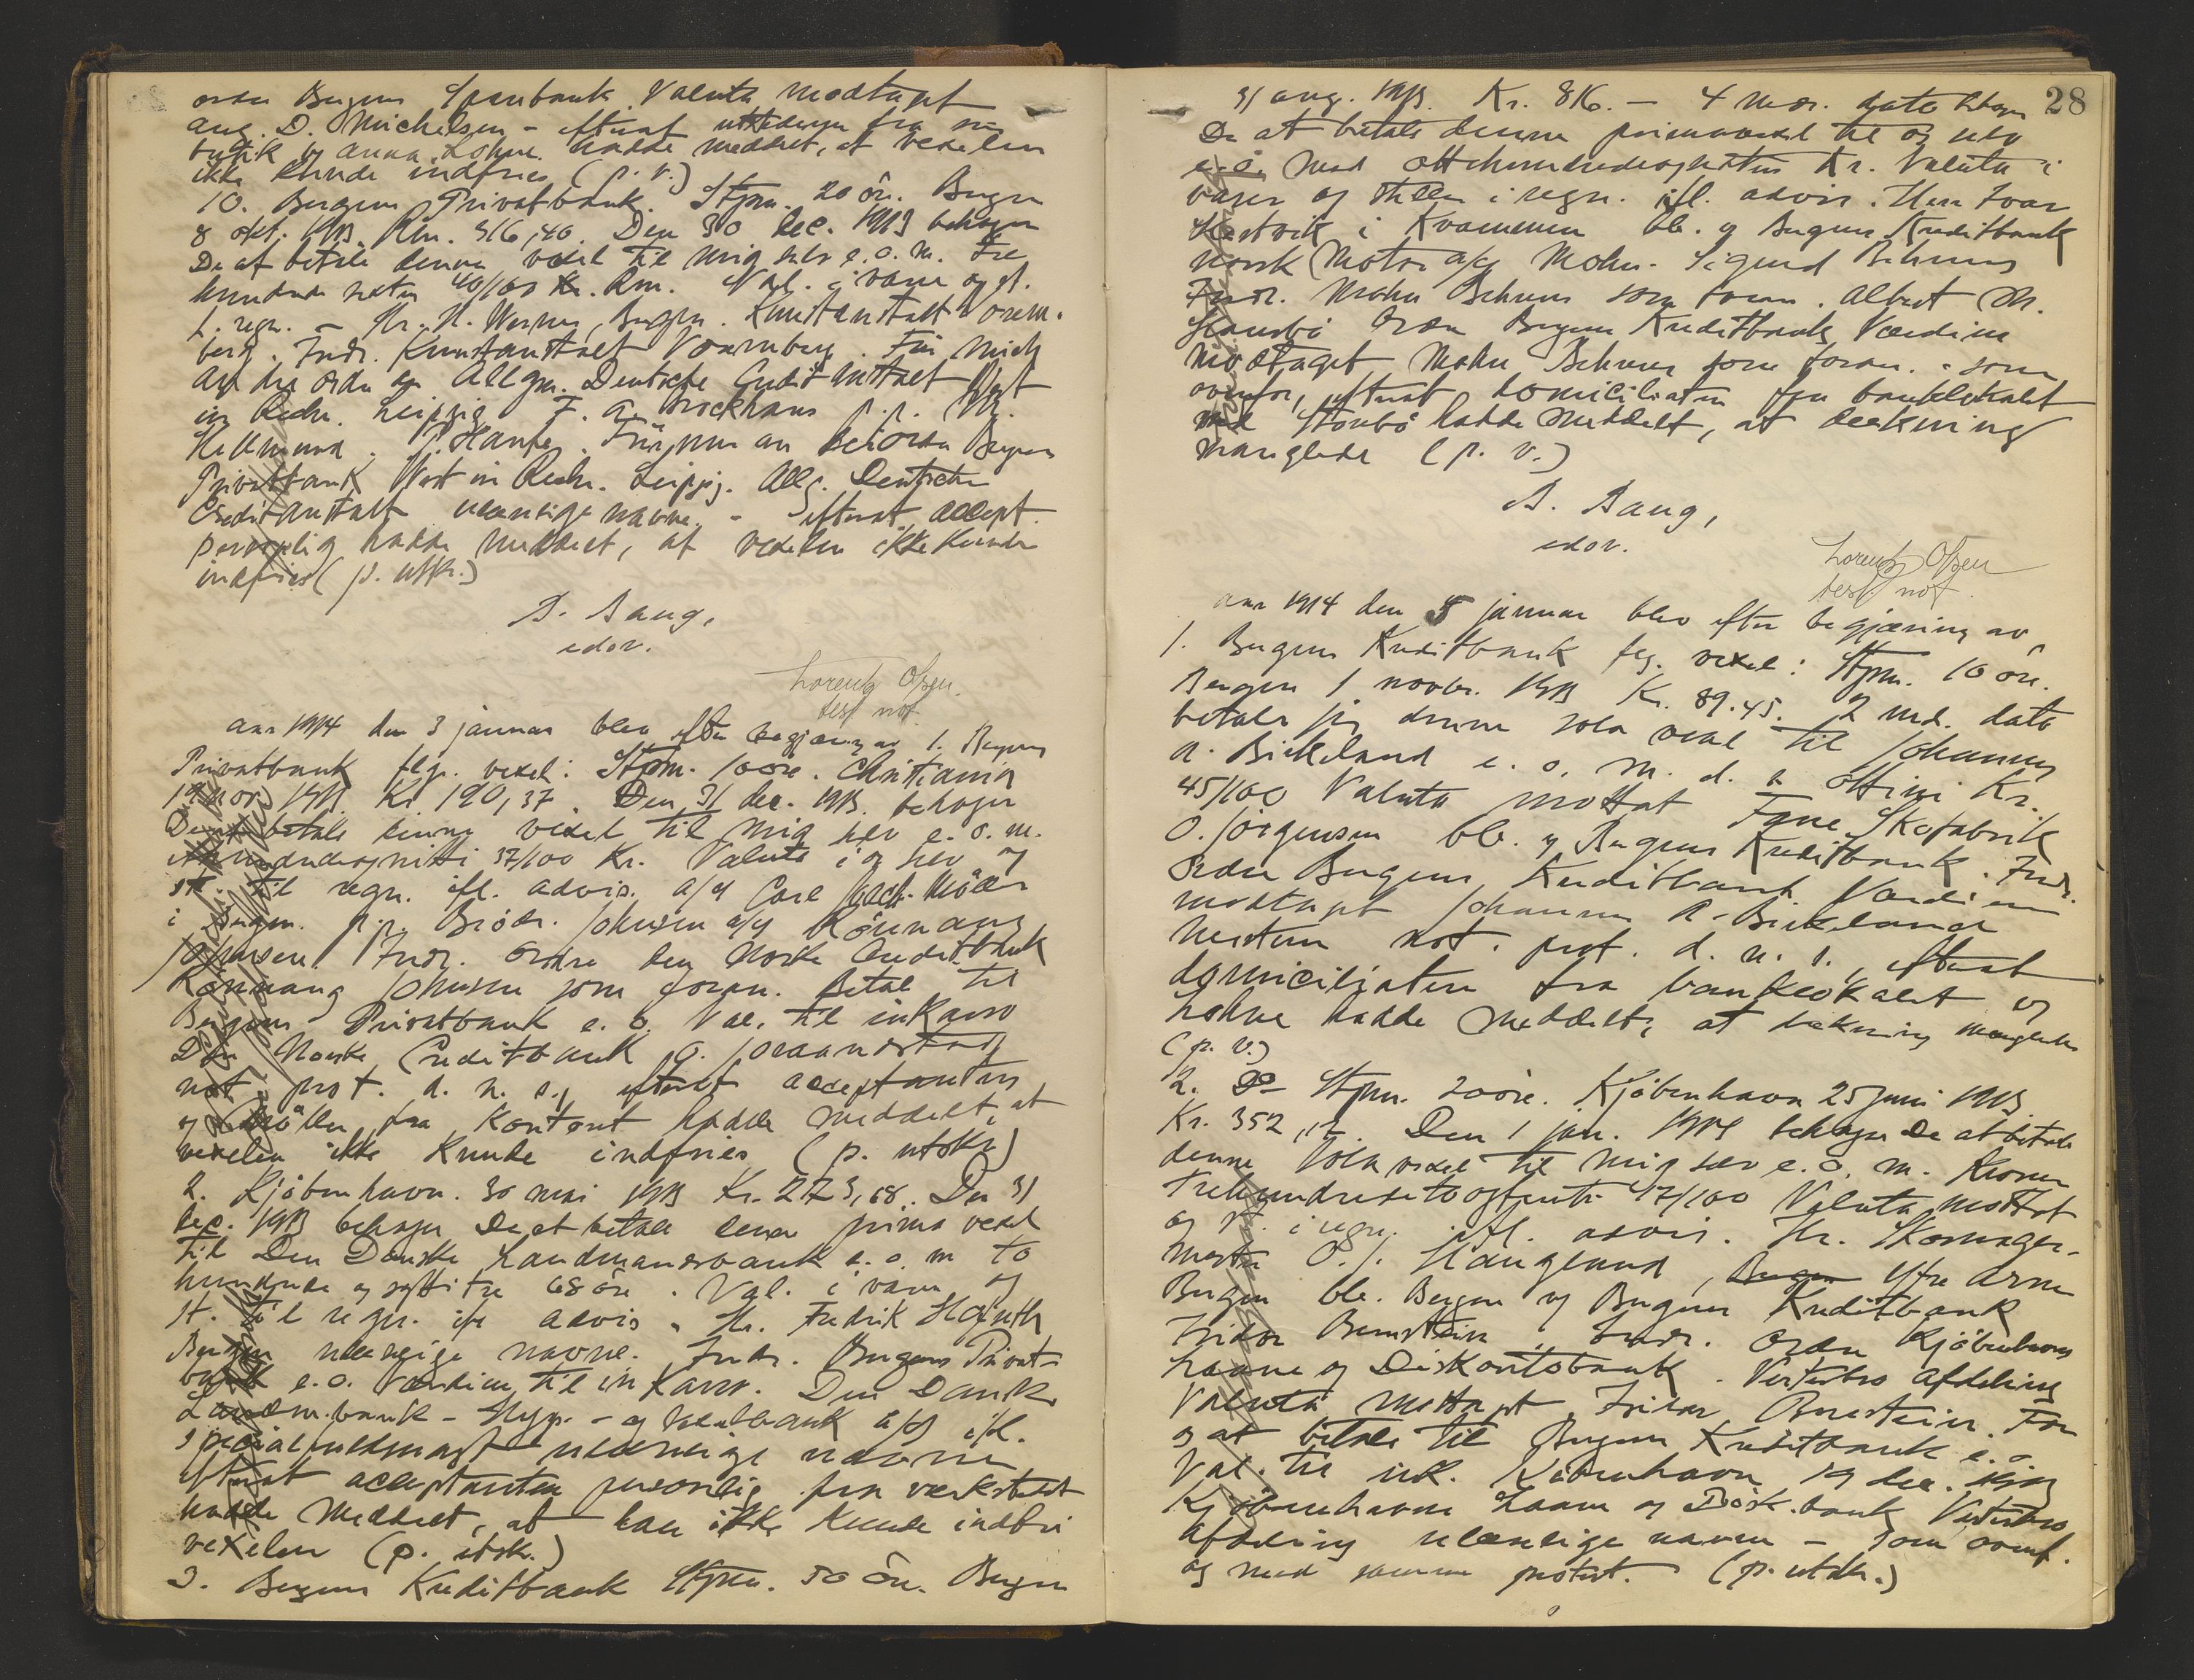 ordre Bergens Sparebank Valuta modtaget
aug. D. Michelsen - efterat utstederen fra sin
butik og Anna Lohne hadde meddelt, at vexelen
ikke kunde indfries (p. v.)
10. Bergens Privatbank. Stpm. 20 öre. Bergen
8 okt. 1913. Rm. 316,40. Den 30 dec. 1913 behager
De at betale denne vexel til mig selv e. o. m. Tre
hundrede sexten 40/100 Kr. Rm. Val. i varer og st.
i regn. - Hr. H. Werner, Bergen. Kunstanstalt
berg. Indr. Kunstanstalt. Für mich
an die ordre der Allgm. Deutsche Credit Anstalt Wert
in Rechn. Leipzig F. A. Brockhaus p. p.
Hellmund. Für uns an die ordre Bergens
Privatbank Wert in Rechn. Leipzig. Allg. Deutsche
Creditanstalt ulæselige navne. - efterat accept.
personlig hadde meddelt, at vexelen ikke kunde
indfries (p. utskr.)
B. Baug,
edsv.
Lorentz Olsen
test. not.
Aar 1914 den 3 januar blev efter begjæring av 1. Bergens
Privatbank flg. vexel: Stpm. 10 öre. Christiania
nov. 1913. Kr 190,37. Den 31 dec. 1913 behager
De at betale denne vexel til mig selv e. o. m.
37/100 Kr. Valuta i og selv og
st. til regn. ifl. advis. a/s Carl Möller
i Bergen. p. p. Brödr. Johnsen a/s Rönnaug
Johnsen. Indr. Ordre den Norske Creditbank
Rönnaug Johnsen som foran. Betal til
Bergens Privatbank e. o. Val. til inkasso
Den Norske Creditbank
not. prot. d. n. s., efterat acceptanten
og Möller fra kontoret hadde meddelt, at
vexelen ikke kunde indfries (p. utskr)
2. Kjöbenhavn. 30 mai 1913 Kr. 273,68. Den 31
dec. 1913 behager De at betale denne prima vexel
til Den Danske Landmandsbank e. o. m to
hundrede og sytti tre 68 öre. Val. i varer og
st. til regn. ifl advis. Hr. Fredrik
Bergen ulæselige navne. Indr. Bergens Privat-
bank e. o. Værdien til inkasso. Den Danske
Landm.bank - Hyp. - og Vexelbank a/s ifl.
specialfuldmagt ulæselige navne
efterat acceptanten personlig fra verkstedet
hadde meddelt, at han ikke kunde indfri
vexelen (p. utsk.)
3. Bergens Kreditbank Stpm. 50 öre. Bergen
28
31 aug. 1913. Kr. 816. - 4 mdr. dato behager
De at betale denne primavexel til os selv
e. o. med ottehundredeogseksten Kr. Valuta i
varer og stilles i regn. ifl. advis. Herr Ivar
i Kvammen bb. og Bergens Kreditbank
Norsk Motor a/s Mohn. Sigurd Behrens
Indr. Mohn Behrens som foran. Albert M.
Ordre Bergens Kreditbank Værdien
modtaget Mohn Behrens som foran. - som
ovenfor, efterat domiciliaten fra banklokalet
ved Stoubö hadde meddelt, at dækning
manglede (p. v.)
B. Baug,
edsv.
Lorentz Olsen
test. not.
Aar 1914 den 5 januar blev efter begjæring av
1. Bergens Kreditbank flg. vexel: Stpm. 10 öre.
Bergen 1 novbr. 1913 Kr. 89.45. 2 md. dato
betaler jeg denne sola vexel til Johannes
A. Birkeland e. o. m. d. s. ottini Kr.
45/100 Valuta mottat Fane Skofabrik
O. Jörgensen bb. og Bergens Kreditbank. Indr.
Ordre Bergens Kreditbank Værdien
modtaget Johannes A. Birkeland
not. prot. d. n. s., efterat
domiciliaten fra banklokalet og
Lohne hadde meddelt, at dækning manglede
(p. v.)
2. Do Stpm. 20 öre. Kjöbenhavn 25 juni 1913
Kr. 352,17. Den 1 jan. 1914 behager De at betale
denne Sola vexel til mig selv e. o. m. Kroner
Trehundredetoogfemti 17/100 Valuta mottat
og st. i regn. ifl. advis. Hr. Skomager-
mester O. J. Haugland, Bergen Ytre Arne
Bergen bb. Bergen og Bergens Kreditbank
Isidor Bernstein. Indr. Ordre Kjöbenhavns
Laane og Diskontobank. Vesterbro Afdeling
Valuta mottaget Isidor Bernstein. For
os at betale til Bergens Kreditbank e. o.
Val. til ink. Köbenhavn 19 dec. 1913
Kjöbenhavns Laane og Disk.bank Vesterbro
afdeling ulæselige navne - som ovenf.
og med samme protest. (p. utskr.)